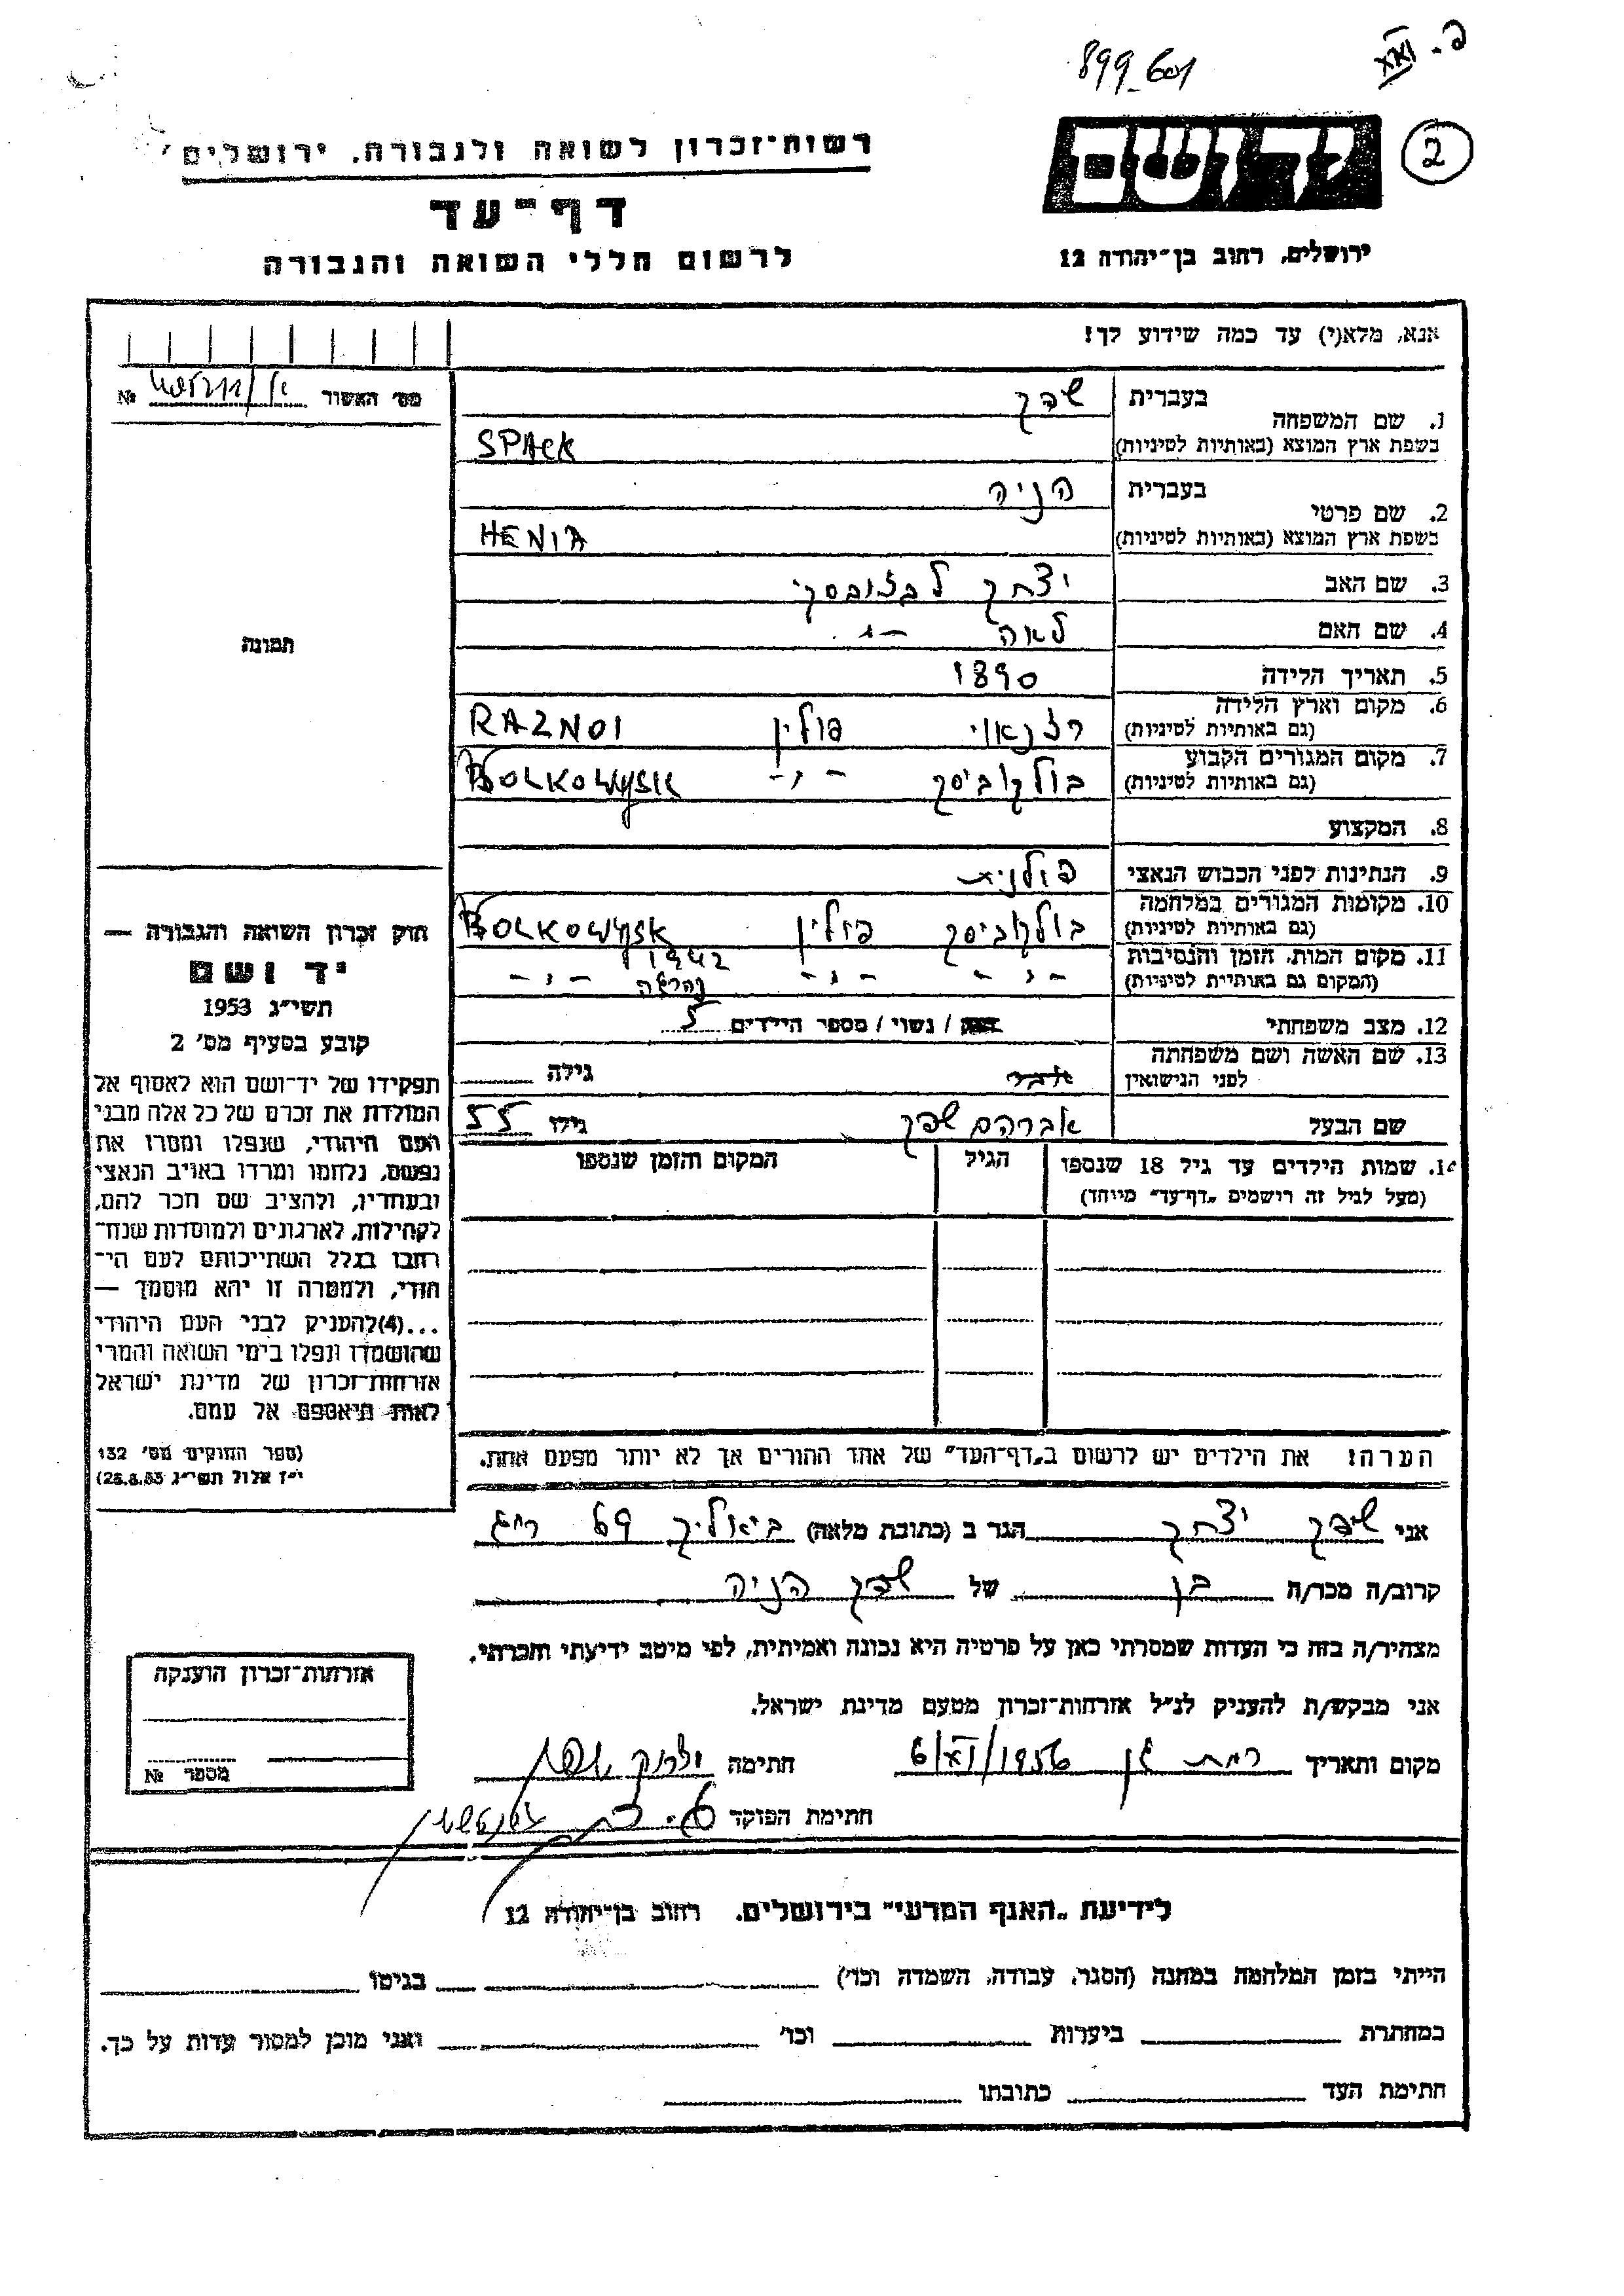 899_601
2
יד ושם
ירושלים, רחוב בן־יהודה 12
רשות־זכרון לשואה ולגבורה, ירושלים
דף־עד
לרשום חללי השואה והגבורה
אנא, מלא(י) עד כמה שידוע לך!
מס׳ האשור № 
תמונה
1. שם המשפחה
בעברית שפק
בשפת ארץ המוצא (באותיות לטיניות) SPACK
2. שם פרטי
בעברית הניה
בשפת ארץ המוצא (באותיות לטיניות) HENIA
3. שם האב יצחק לבצובסקי
4. שם האם לאה -"-
5. תאריך הלידה 1890
6. מקום וארץ הלידה
(גם באותיות לטיניות) רזנאוי פולין RAZNOI
7. מקום המגורים הקבוע
(גם באותיות לטיניות) בולקוביסק -"- BOLKOWYSK
8. המקצוע
9. הנתינות לפני הכבוש הנאצי פולנית
10. מקומות המגורים במלחמה
(גם באותיות לטיניות) בולקוביסק פולין BOLKOWYSK
11. מקום המות, הזמן והנסיבות
(המקום גם באותיות לטיניות) -"- -"- 1942 נהרגה -"-
12. מצב משפחתי רווק / נשוי / מספר הילדים 5
13. שם האשה ושם משפחתה
לפני הנישואין גילה
שם הבעל אברהם שפק גילו 55
14. שמות הילדים עד גיל 18 שנספו
(מעל לגיל זה רושמים „דף־עד" מיוחד)
הגיל
המקום והזמן שנספו
הערה: את הילדים יש לרשום ב„דף־העד" של אחד ההורים אך לא יותר מפעם אחת.
חוק זכרון השואה והגבורה —
יד ושם
תשי״ג 1953
קובע בסעיף מס׳ 2
תפקידו של יד־ושם הוא לאסוף אל
המולדת את זכרם של כל אלה מבני
העם היהודי, שנפלו ומסרו את
נפשם, נלחמו ומרדו באויב הנאצי
ובעוזריו, ולהציב שם וזכר להם,
לקהילות, לארגונים ולמוסדות שנח־
רבו בגלל השתייכותם לעם הי־
הודי, ולמטרה זו יהא מוסמך —
...(4)להעניק לבני העם היהודי
שהושמדו ונפלו בימי השואה והמרי
אזרחות־זכרון של מדינת ישראל
לאות היאספם אל עמם.
(ספר החוקים מס׳ 132
י״ז אלול תשי״ג 25.8.53)
אני שפק יצחק הגר ב (כתובת מלאה) ביאליק 69 רמג
קרוב/ה מכר/ה בן של שפק הניה
מצהיר/ה בזה כי העדות שמסרתי כאן על פרטיה היא נכונה ואמיתית, לפי מיטב ידיעתי והכרתי.
אני מבקש/ת להעניק לנ״ל אזרחות־זכרון מטעם מדינת ישראל.
מקום ותאריך רמת גן 6/XI/1956 חתימה
חתימת הפוקד
אזרחות־זכרון הוענקה
מספר №
לידיעת „האגף המדעי" בירושלים, רחוב בן־יהודה 12
הייתי בזמן המלחמה במחנה (הסגר, עבודה, השמדה וכד׳) בגיטו
במחתרת ביערות וכו׳ ואני מוכן למסור עדות על כך.
חתימת העד כתובתו